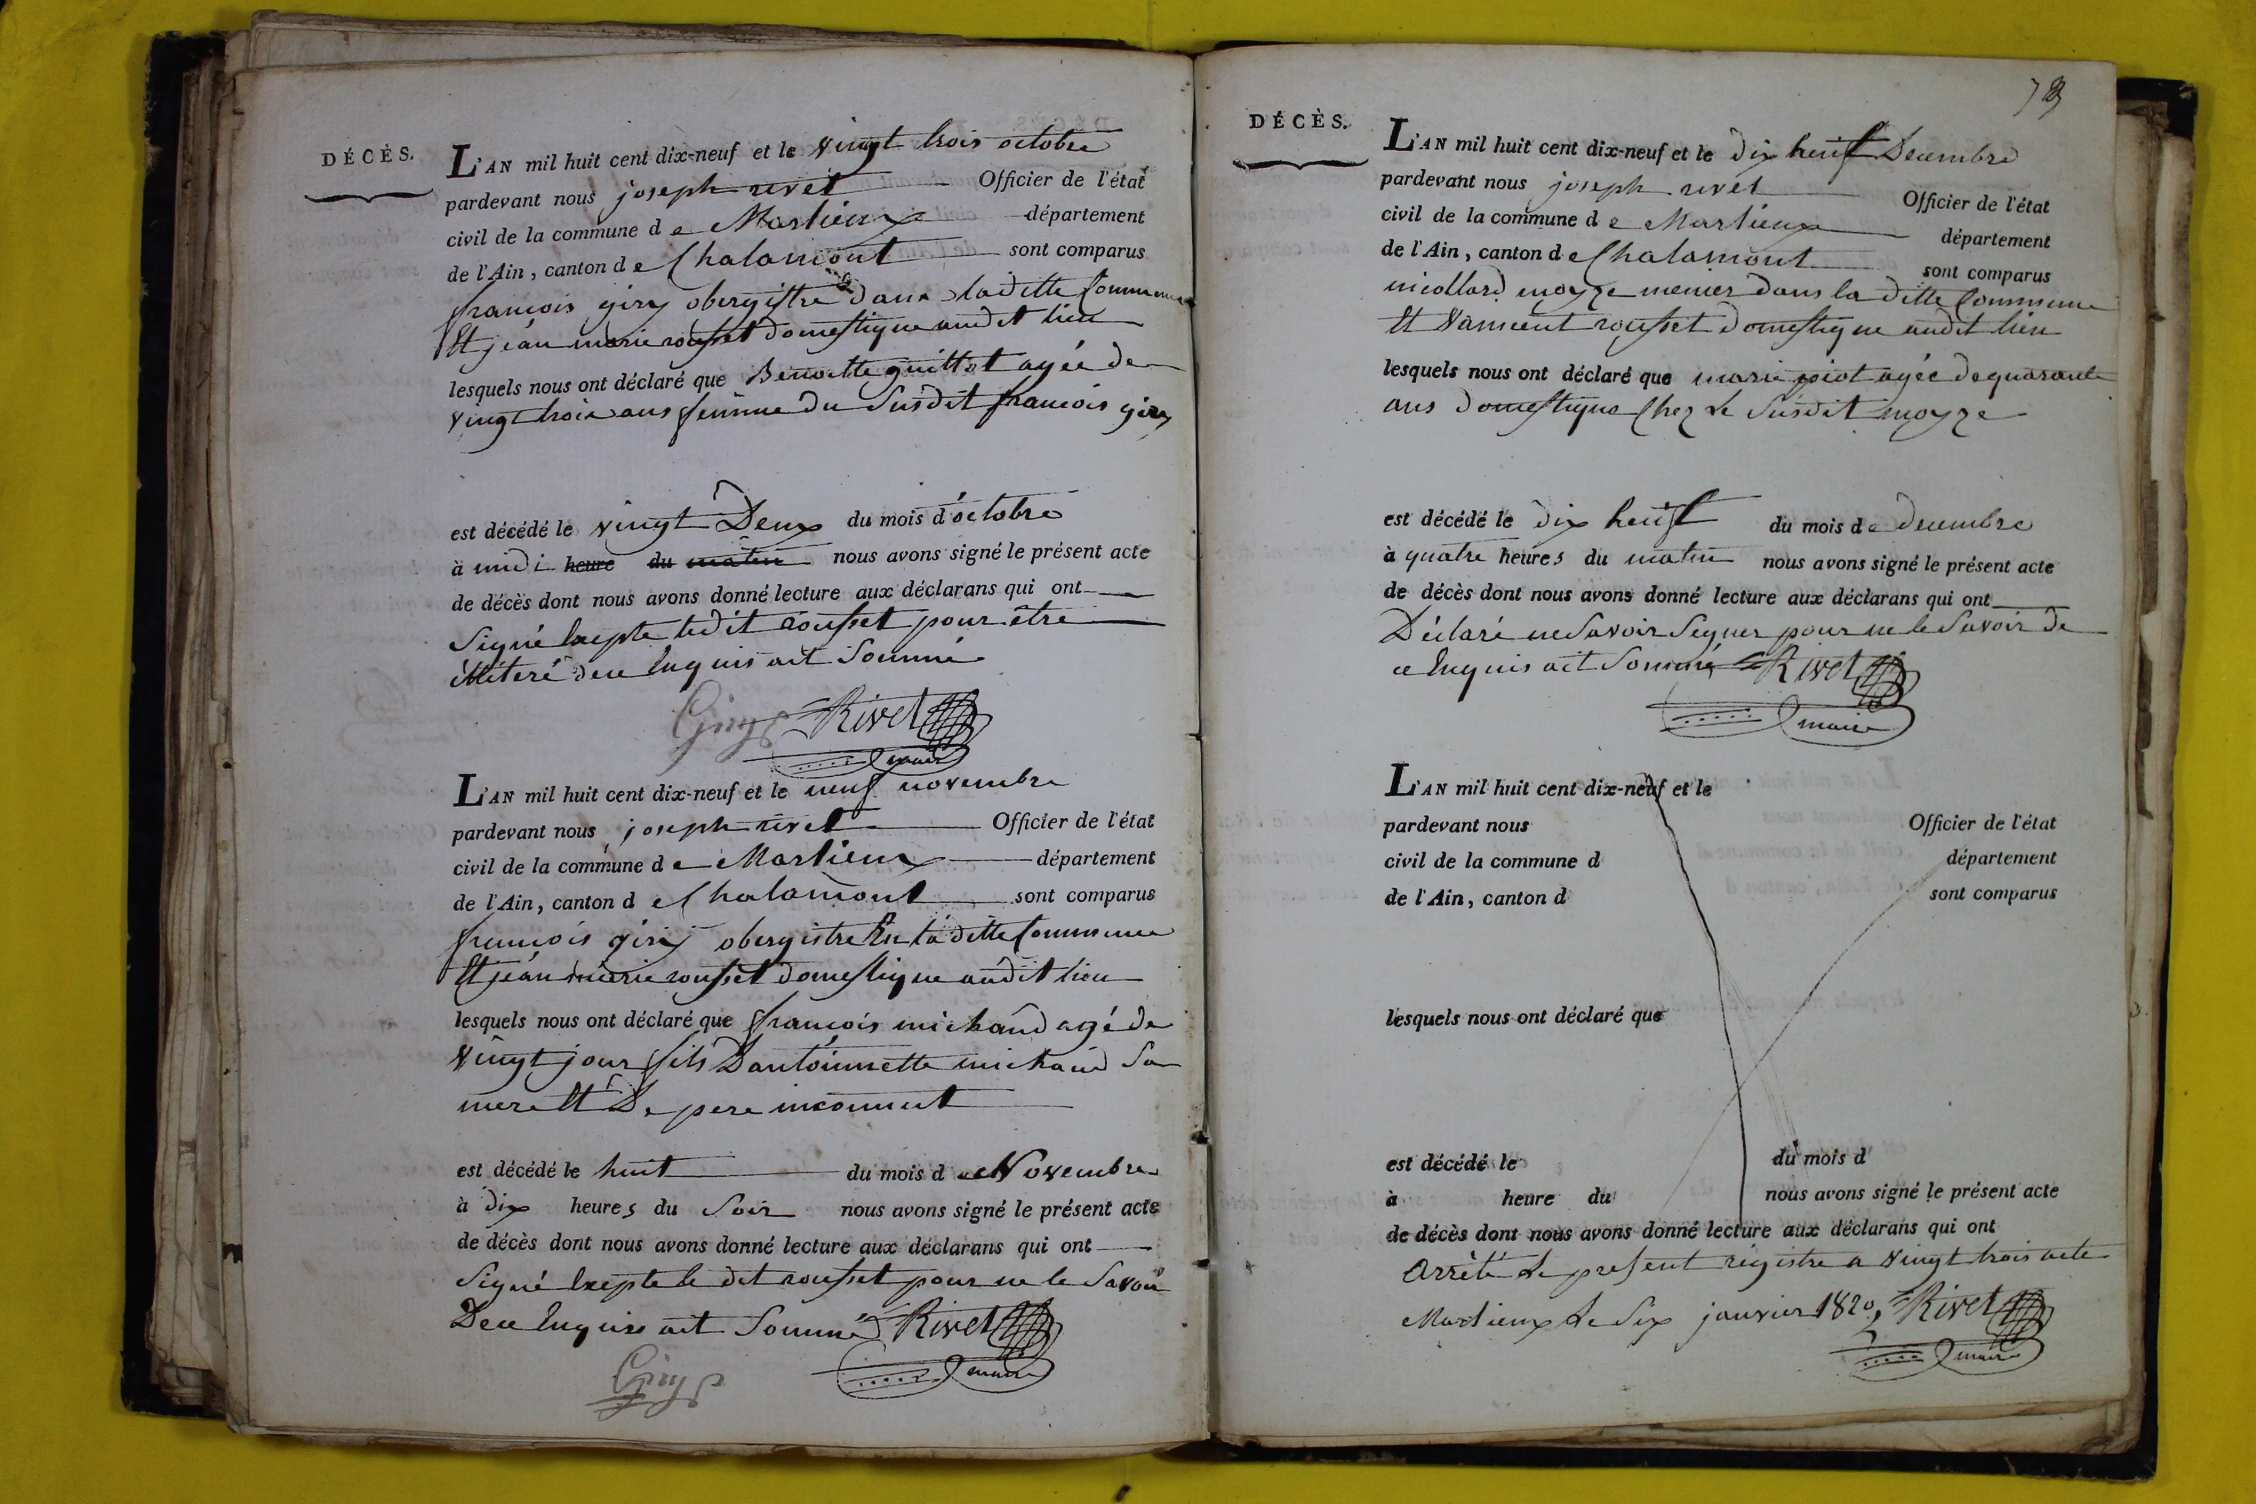 DÉCÈS.
L'AN mil huit cent dix-neuf et le vingt trois octobre
pardevant nous joseph rivet Officier de l'état
civil de la commune de Marlieux département
de l'Ain, canton de Chalamont sont comparus
françois giry obergistre dans la ditte Commune
Et jéan marie rousset domestique audit lieu
lesquels nous ont déclaré que Benoitte guillot agée de
vingt trois ans femme du Susdit françois giry
est décédé le vingt Deux du mois d'octobre
à midi heure du matin nous avons signé le présent acte
de décès dont nous avons donné lecture aux déclarans qui ont
Signé Exepte ledit rousset pour être
illiteré de ce Enquis ait Sommé
Giry Rivet
maire
L'AN mil huit cent dix-neuf et le neuf novembre
pardevant nous joseph rivet Officier de l'état
civil de la commune de Marlieux département
de l'Ain, canton de Chalamont sont comparus
françois giry obergistre En la ditte Commune
Et jéan marie rousset domestique audit lieu
lesquels nous ont déclaré que françois michaud agé de
vingt jour fils Dantoinnette michaud Sa
mere Et De pere inconnut
est décédé le huit du mois de Novembre
à dix heures du Soir nous avons signé le présent acte
de décès dont nous avons donné lecture aux déclarans qui ont
Signé Exepte le dit rousset pour ne le Savoir
De ce Enquis ait Sommé Rivet
maire
Giry
DÉCÈS.
L'AN mil huit cent dix-neuf et le dix heuf Decembre
pardevant nous joseph rivet Officier de l'état
civil de la commune de Marlieux département
de l'Ain, canton de Chalamont sont comparus
nicollard moyze menier dans la ditte Commune
Et Vancent rousset domestique audit lieu
lesquels nous ont déclaré que marie piot agée de quarante
ans domestique Chez Le Susdit moyze
est décédé le dix heuf du mois de decembre
à quatre heures du matin nous avons signé le présent acte
de décès dont nous avons donné lecture aux déclarans qui ont
Déclaré ne Savoir Segner pour ne le Savoir de
ce Enquis ait Sommé Rivet
maire
L'AN mil huit cent dix-neuf et le
pardevant nous Officier de l'état
civil de la commune d département
de l'Ain, canton d sont comparus
lesquels nous ont déclaré que
est décédé le du mois d
à heure du nous avons signé le présent acte
de décès dont nous avons donné lecture aux déclarans qui ont
Arrêté Le present régistre a vingt trois acte
Marlieux Le Six janvier 1820, Rivet
maire